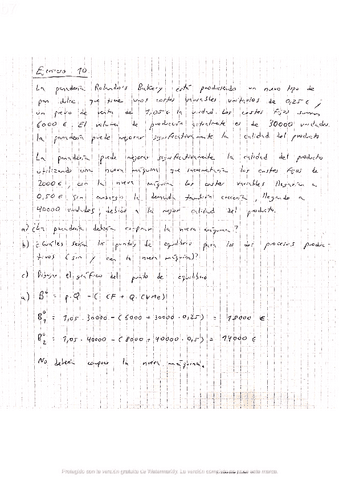 Ejercicio 10
La panadería Bakery está produciendo un nuevo tipo de
pan dulce que tiene unos costes variables unitarios de 0,25 € y
un precio de venta de 1,05 € la unidad. Los costes fijos suman
6000 €. El volumen de producción actualmente es de 30000 unidades.
La panadería puede mejorar significativamente la calidad del producto
La panadería puede mejorar significativamente la calidad del producto
utilizando una nueva máquina que aumentaría los costes fijos de
2000 €, con la nueva máquina los costes variables llegarían a
0,50 € sin embargo la demanda también crecería, llegando a
40000 unidades, debido a la mejor calidad del producto.
a) ¿La panadería debería comprar la nueva máquina?
b) ¿Cuáles serán los puntos de equilibrio para los dos procesos produc-
tivos (sin y con la nueva máquina)?
c) el gráfico del punto de equilibrio
a) B = p.Q - ( CF + Q.CVMe)
B1 = 1,05 . 30000 - (6000 + 30000 . 0,25) = 18000 €
B2 = 1,05 . 40000 - (8000 + 40000 . 0,5) = 14000 €
No debería comprar la nueva máquina.